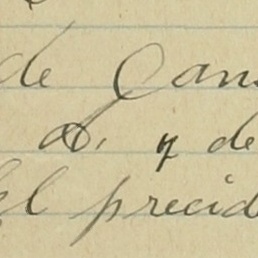 de Can
D. y de
El precid